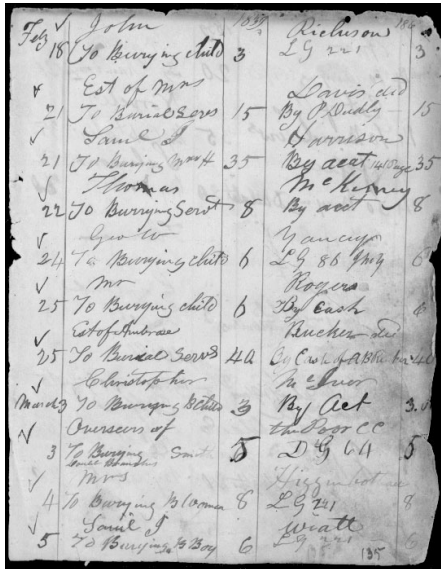 John Richison
Feb 18 To Burying child 3 LG 221 3
Est of Mrs Davis
21 To Burial Servs 15 By P Dudly 15
Saml J Harrison
21 To Burying Mrs H 35 By acct 35
Thomas McKinney
22 To Burying Servt 8 By acct 8
Geo W Yancey
24 To Burying child 6 LG 86 6
Mr Rogers
25 To Burying child 6 By Cash 6
Est of Ambrose Rucker
25 To Burial Servs 40 By Cash of 40
Christopher McIvor
March 3 To Burying child 3 By Act 3
Overseers of the Poor
3 To Burying 5 DG 64 5
Mrs
4 To Burying Bloomer 8 LG 241 8
Saml J Wiatt
5 To Burying B Boy 6 LG 221 6
135